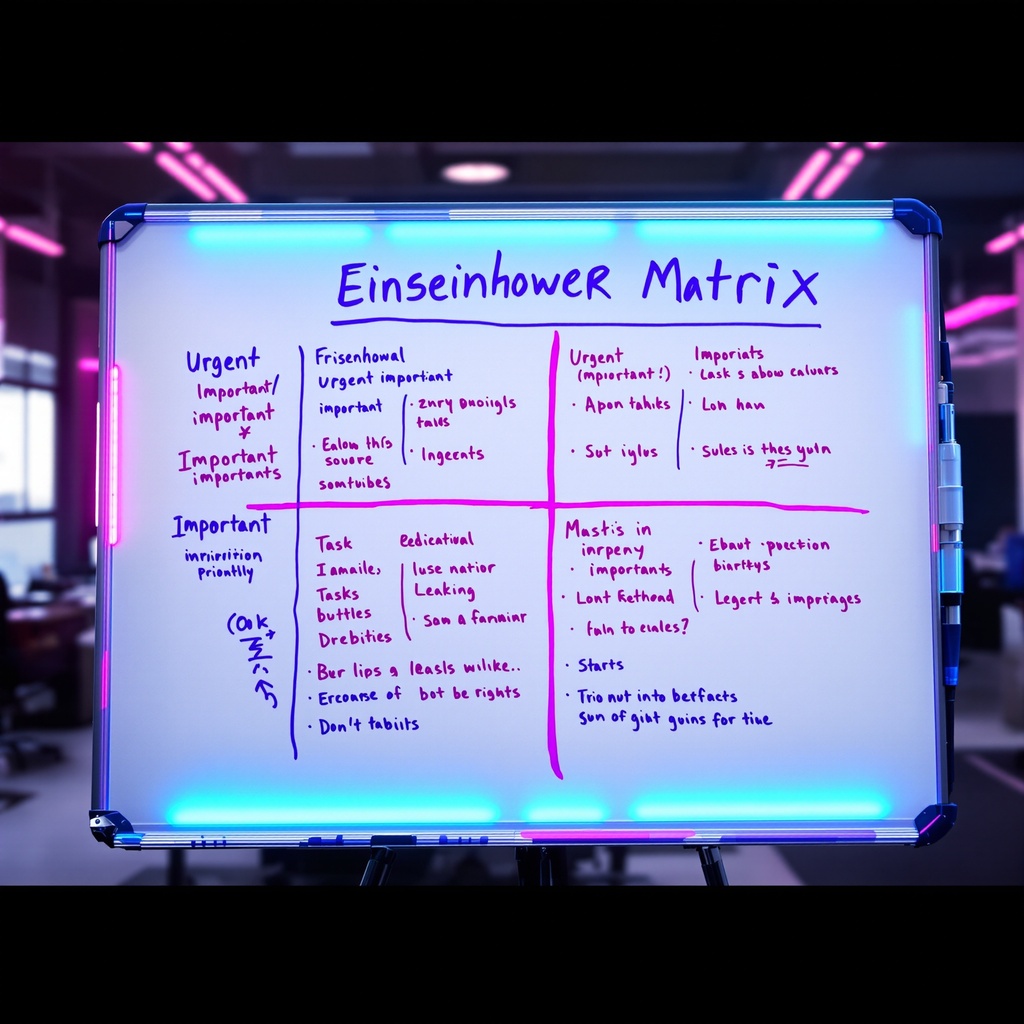 EinseinhoweR MatriX
Urgent
Important/
important
*
Important
importants
Frisenhowal
urgent important
important
Ealow this
sovore
somtuibes
znry Duoiigls
tales
Ingecats
Urgent
(mpıortant!)
Apon tahiks
Sut iylus
Imporiats
Lask s abow caluars
Lon han
Sules is thes yutn
Important
inrirition
Priontlly
(ook
Task
Iamaile,
Tasks
buttles
Drebities
Eedicatival
luse natior
Leaking
Som a farminr
Bur lips a leasls wilike..
Ercoarse of bot be rights
Don't tabiits
Mastis in
inrpeny
importants
Lont Eethond
faln to euales?
Ebaut puection
biartkys
Legert & impriages
Starts
Trio nut into berfacts
Sun of giat guins for tiue